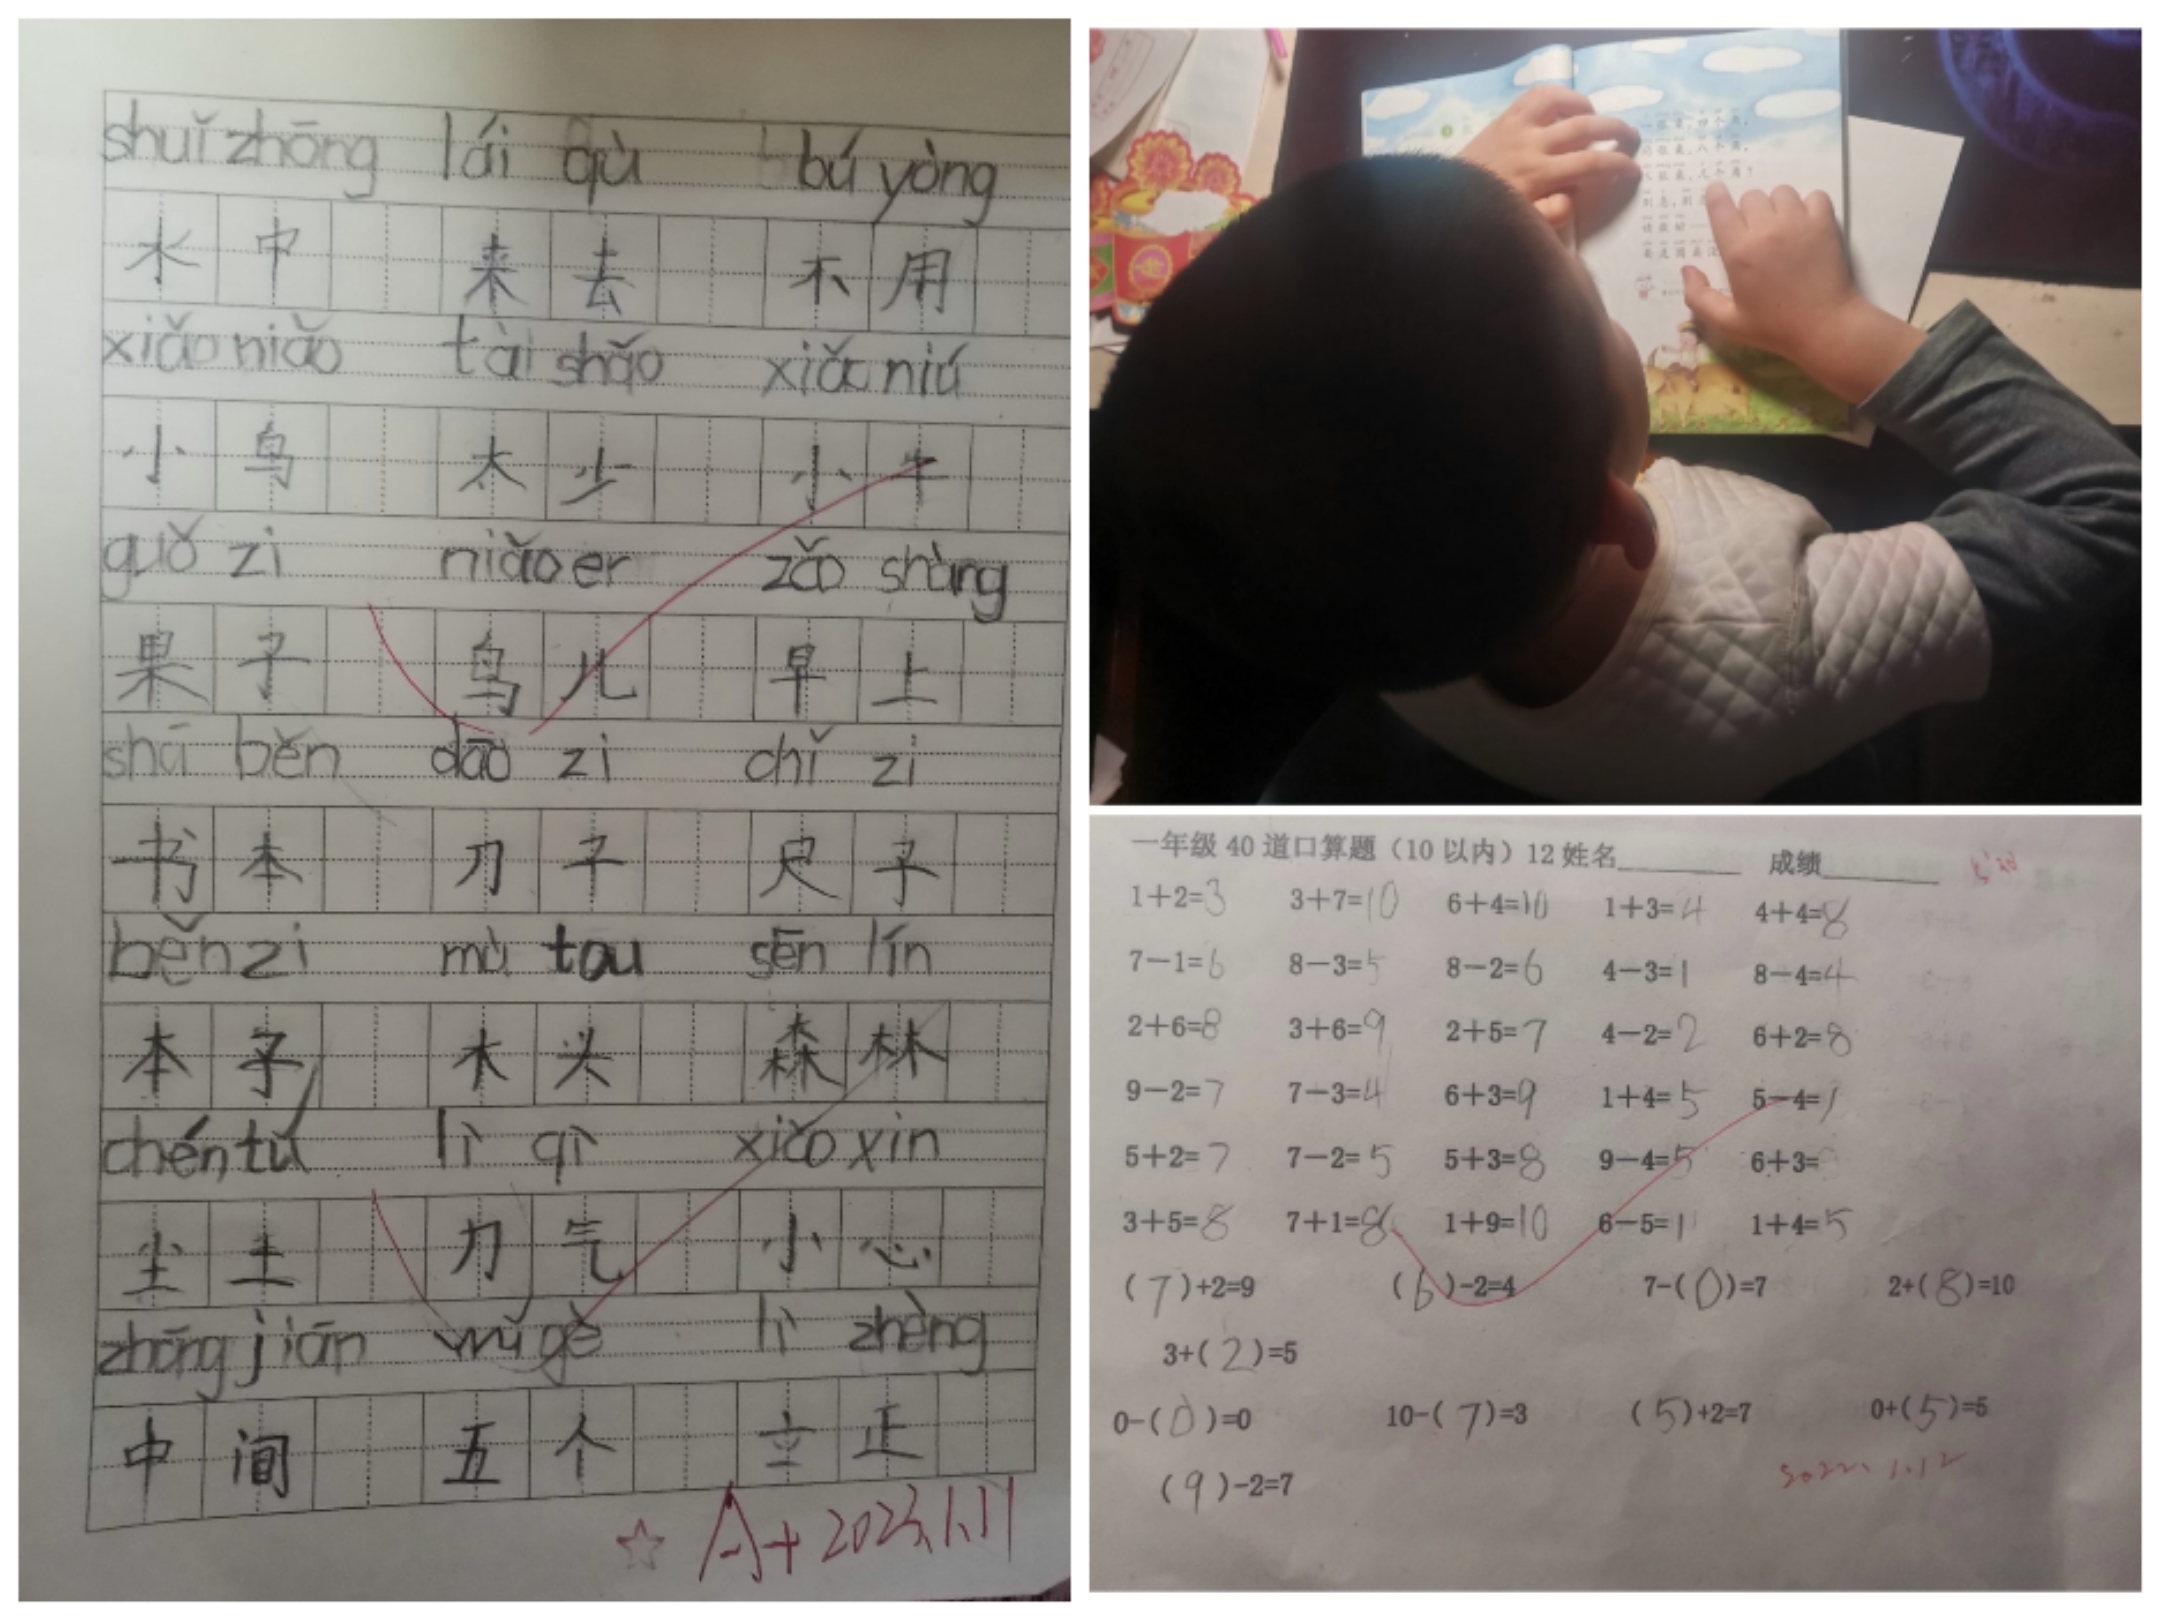 shuǐ zhōng lái qù bú yòng
水中 来去 不用
xiǎo niǎo tài shǎo xiǎo niú
小鸟 太少 小牛
guǒ zi niǎo er zǎo shàng
果子 鸟儿 早上
shū běn dāo zi chǐ zi
书本 刀子 尺子
běn zi mù tou sēn lín
本子 木头 森林
chén tǔ lì qì xiǎo xīn
尘土 力气 小心
zhōng jiān wǔ gè lì zhèng
中间 五个 立正
☆ A+ 2023.1.11
一张桌,四个角,
一年级 40 道口算题(10 以内)12 姓名________ 成绩________
1+2=3 3+7=10 6+4=10 1+3=4 4+4=8
7-1=6 8-3=5 8-2=6 4-3=1 8-4=4
2+6=8 3+6=9 2+5=7 4-2=2 6+2=8
9-2=7 7-3=4 6+3=9 1+4=5 5-4=1
5+2=7 7-2=5 5+3=8 9-4=5 6+3=
3+5=8 7+1=8 1+9=10 6-5=1 1+4=5
(7)+2=9 (6)-2=4 7-(0)=7 2+(8)=10
3+(2)=5
0-(0)=0 10-(7)=3 (5)+2=7 0+(5)=5
(9)-2=7
2022.1.12